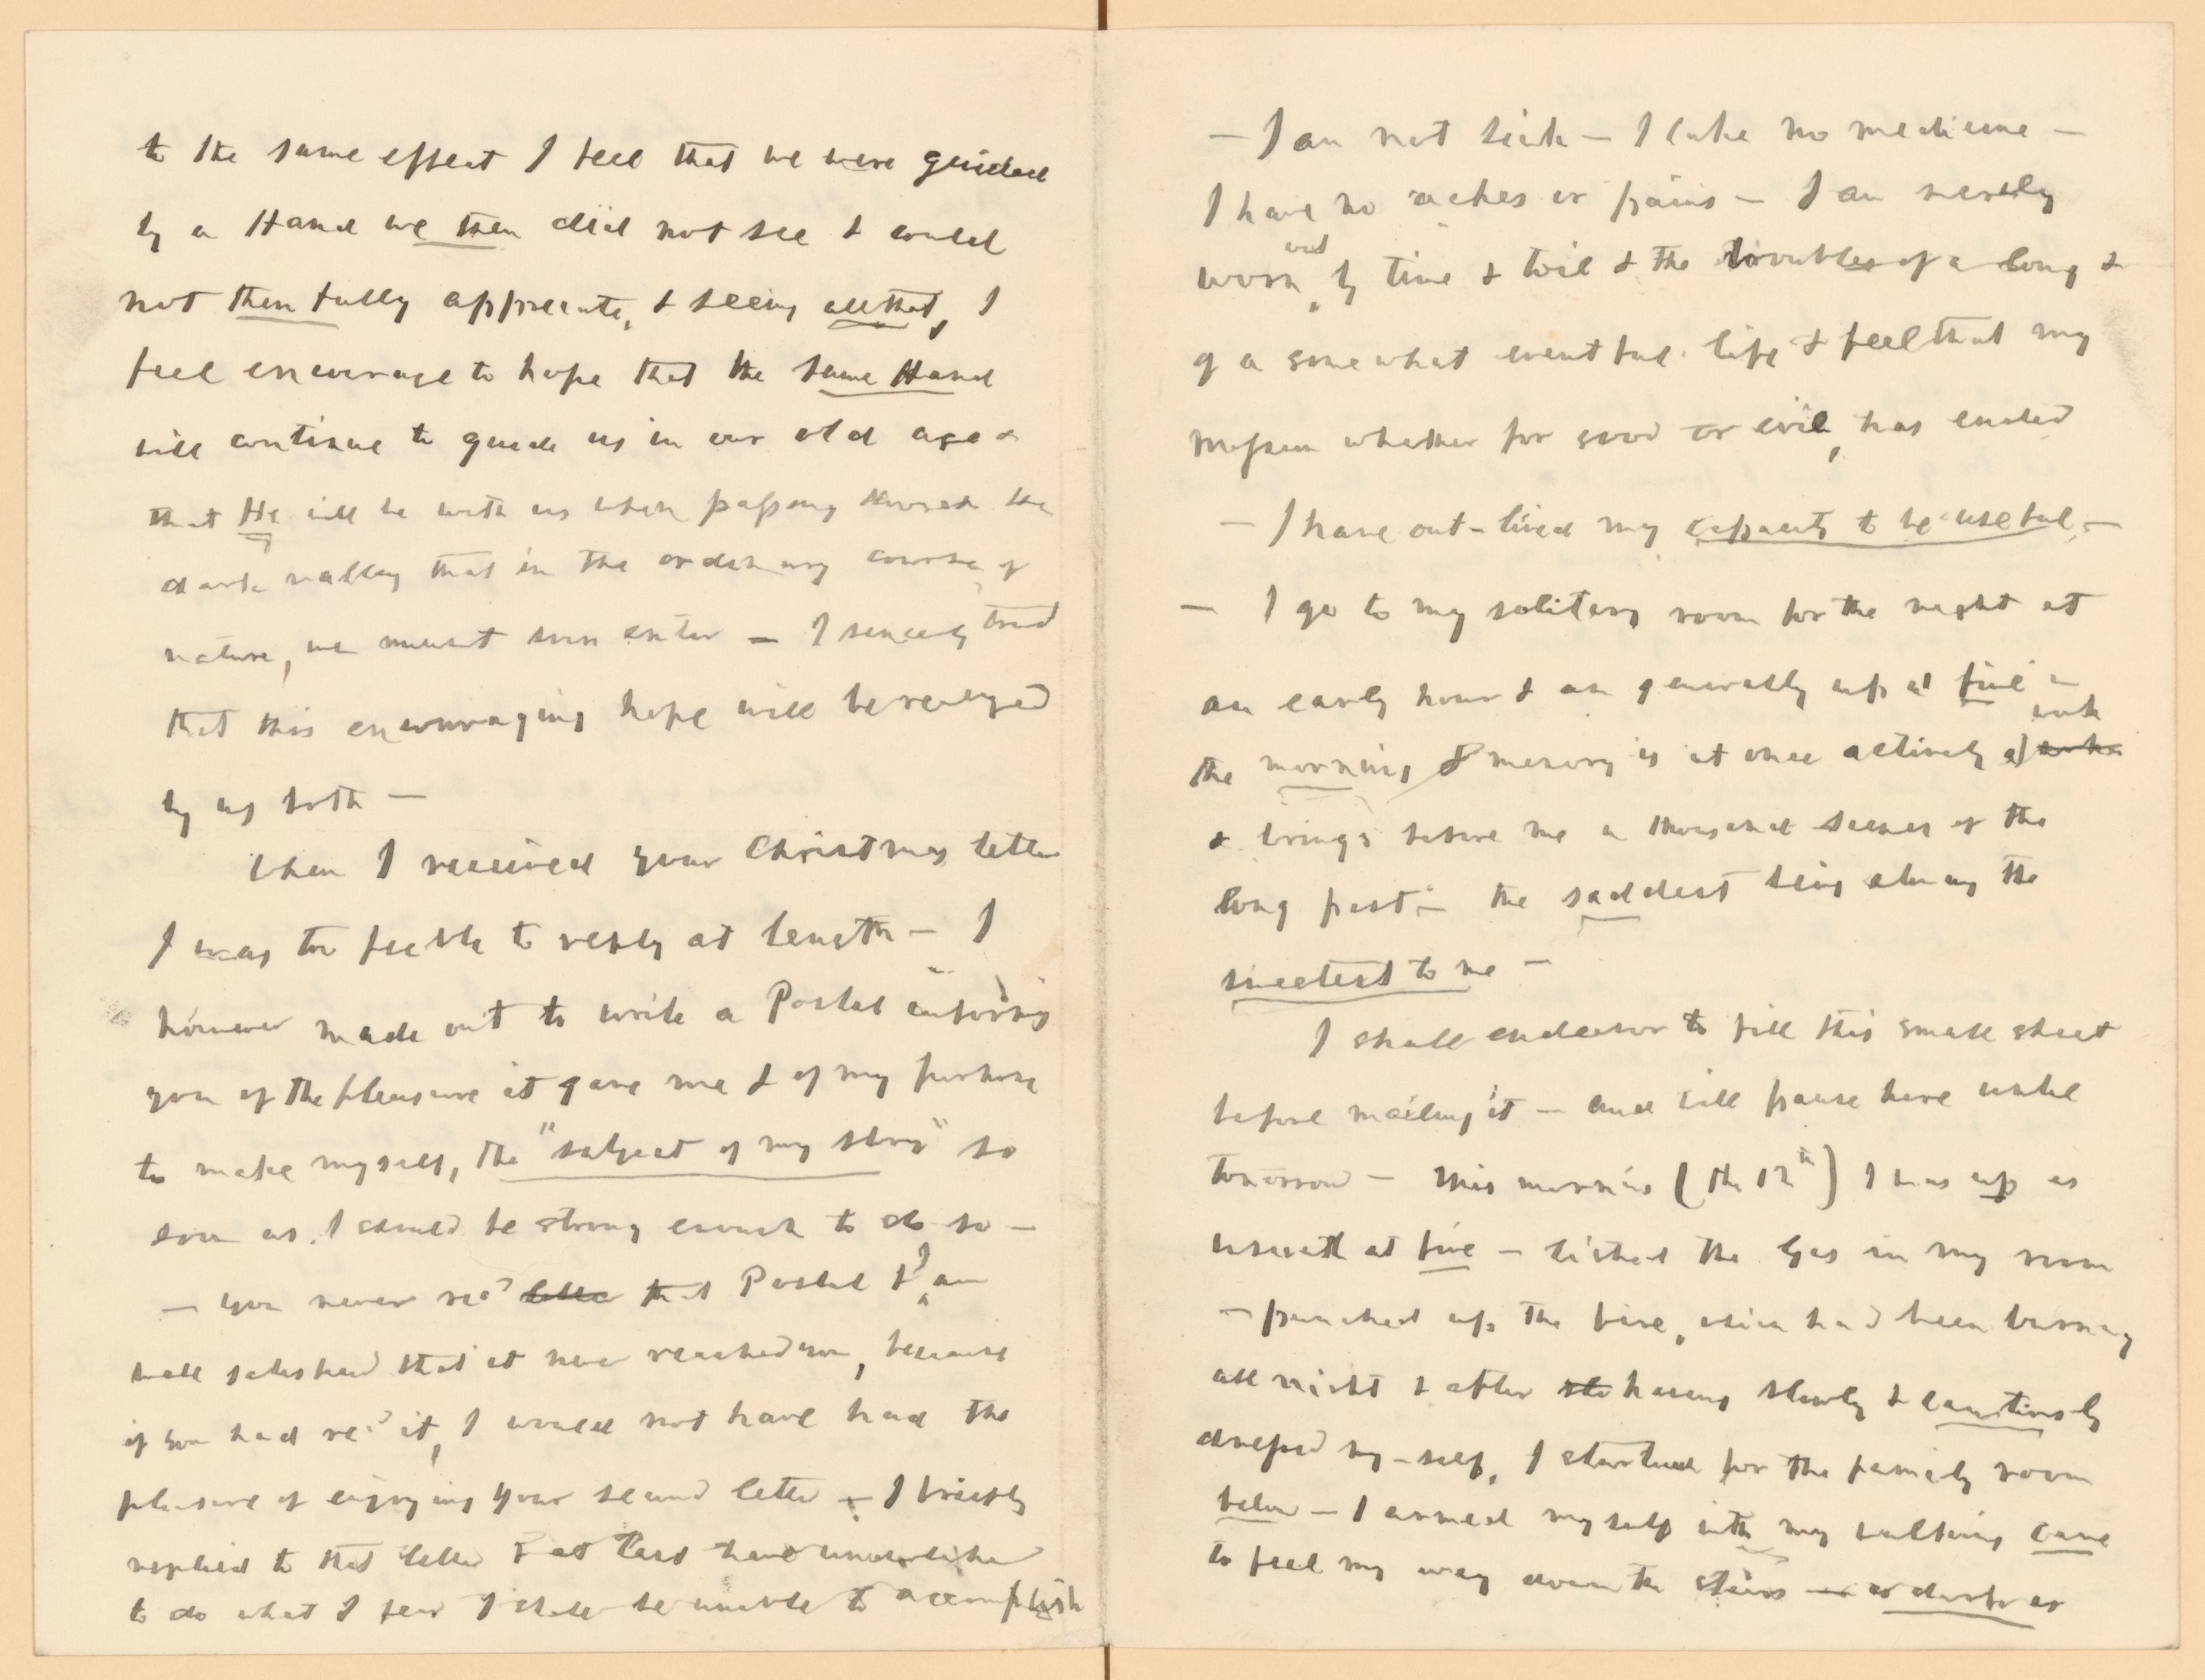 to the same effect I feel that we were guided
by a Hand we then did not see & could
not then fully appreciate, & seeing all that, I
feel encourage to hope that the same Hand
will continue to guide us in our old age &
that He will be with us when passing through the
dark valley that in the ordinary course of
nature, we must soon enter — I sincerely trust
that this encouraging hope will be realized
by us both —
When I received your Christmas letter
I was too feeble to reply at length — I
however made out to write a Postal informing
you of the pleasure it gave me & of my purpose
to make myself, the "subject of my story" so
soon as I should be strong enough to do so —
— You never recd letter that Postal & I am
well satisfied that it never reached you, because
if you had recd it, I would not have had the
pleasure of enjoying your second letter — I briefly
replied to that letter & at last have undertaken
to do what I fear I shall be unable to accomplish
— I am not sick — I take no medicine —
I have no aches or pains — I am merely
worn out by time & toil & the troubles of a long &
of a somewhat eventful life & feel that my
mission whether for good or evil, has ended
— I have out-lived my capacity to be useful, —
— I go to my solitary room for the night at
an early hour & am generally up at five in
the morning & memory is at once actively at work
& brings before me a thousand scenes of the
long past — the saddest being always the
sweetest to me —
I shall endeavor to fill this small sheet
before mailing it — and will pause here until
tomorrow — This morning (the 12th) I was up as
usual at five — lighted the Gas in my room
— punched up the fire, which had been burning
all night & after having slowly & cautiously
dressed my-self, I started for the family room
below — I armed myself with my walking cane
to feel my way down the stairs — as dark as